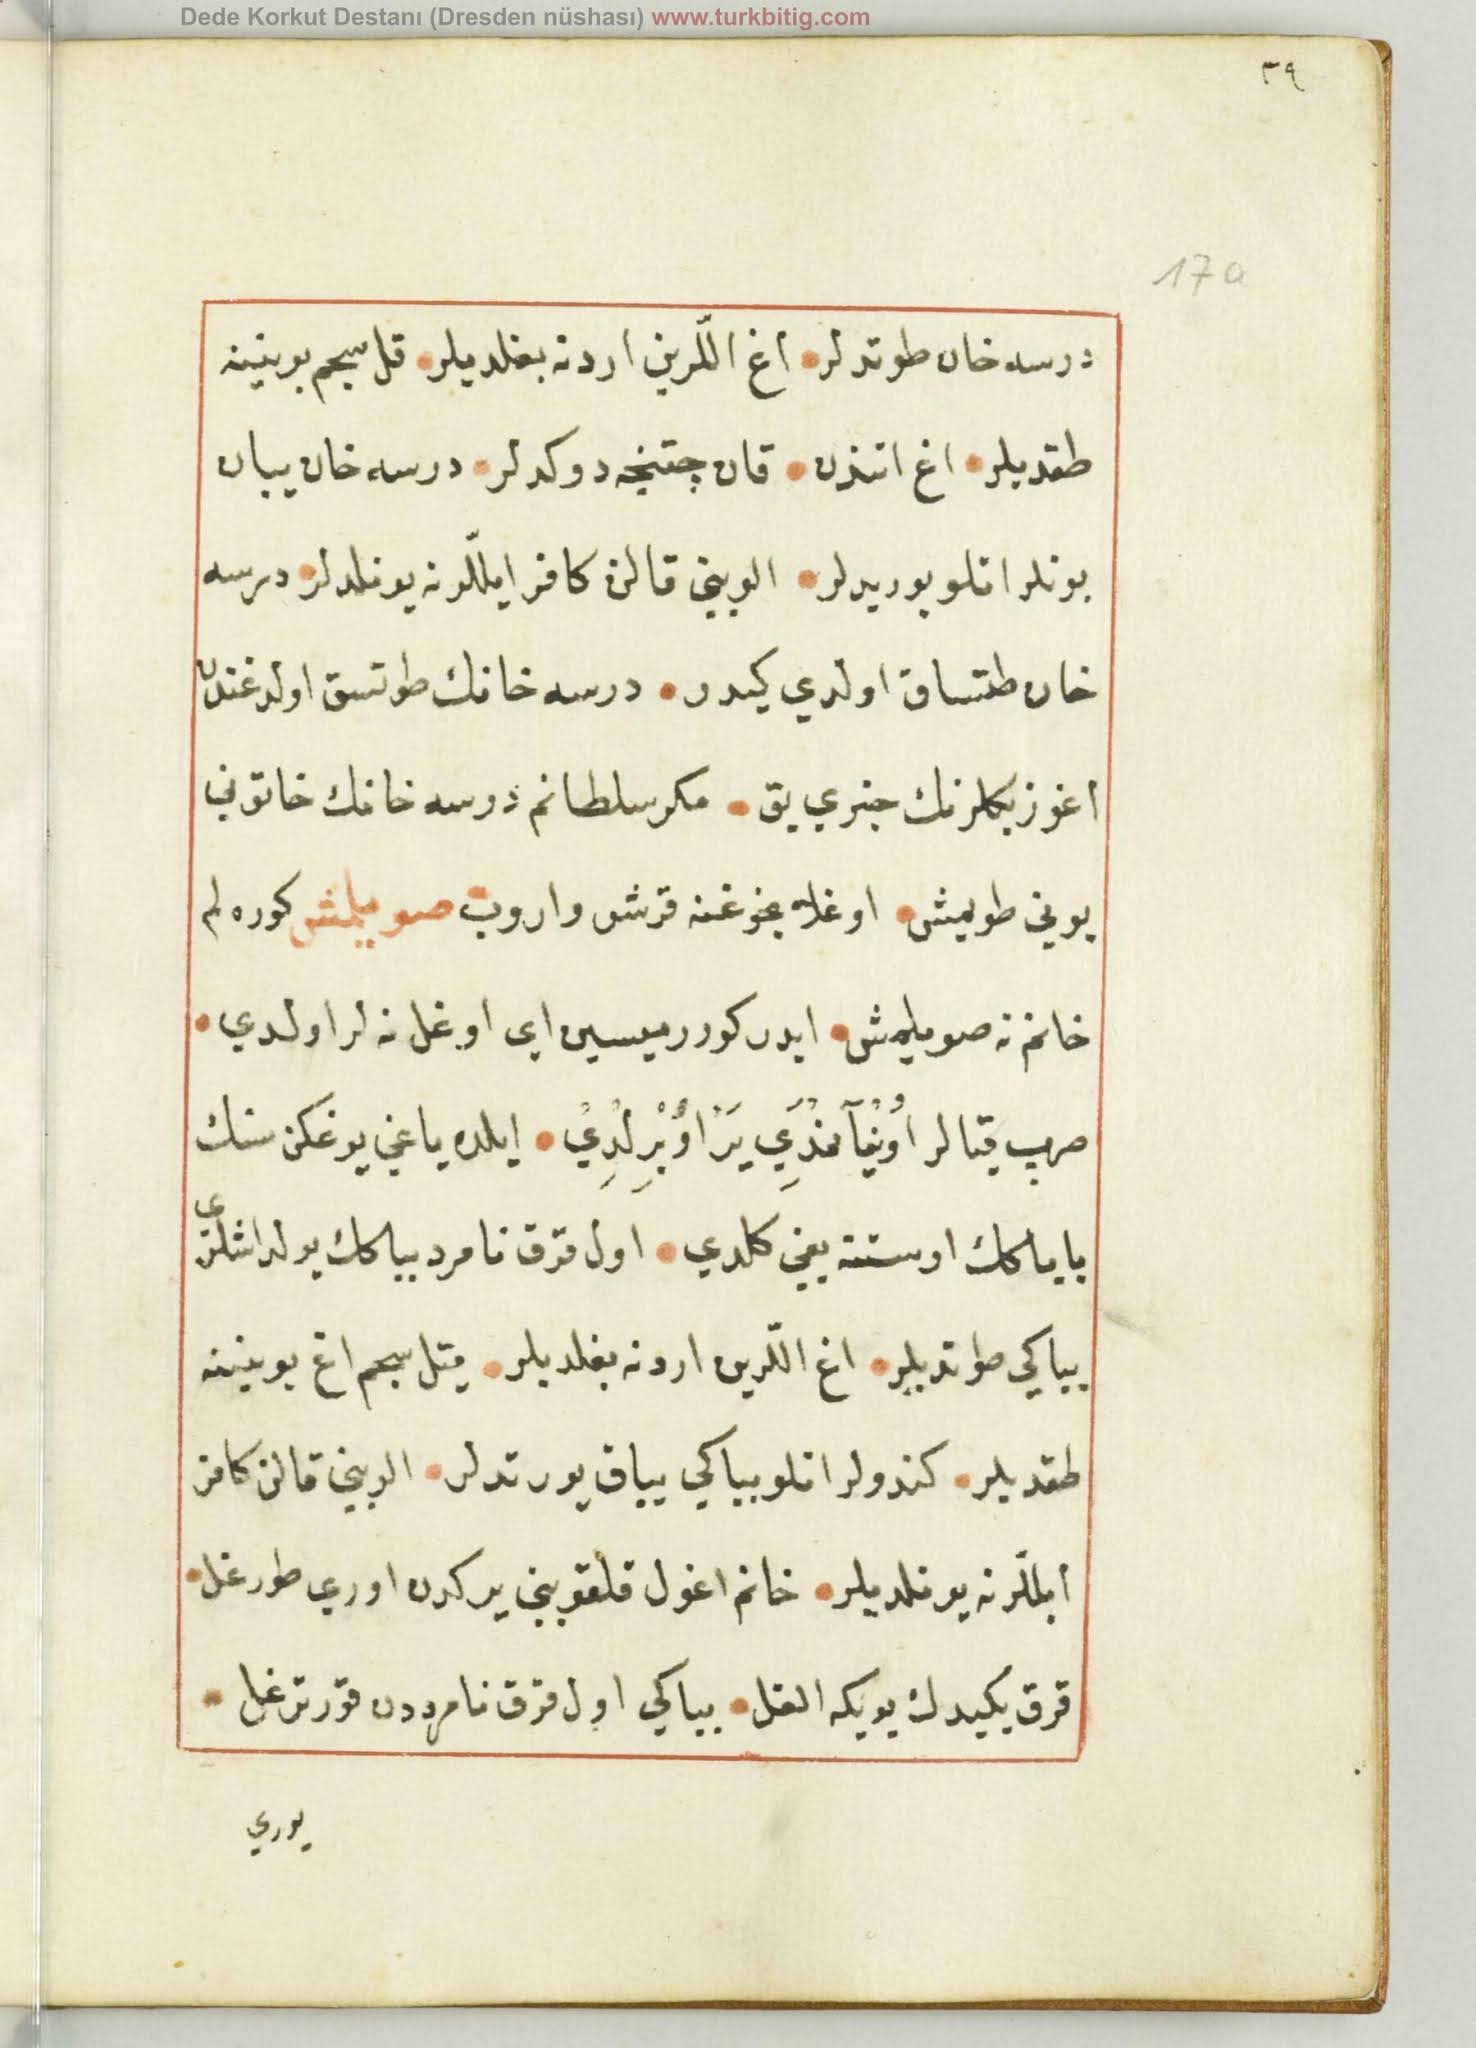 Dede Korkut Destanı (Dresden nüshası) www.turkbitig.com
٣٩
17a
درسه خان طوتدلر • اغ اللّرین اردنه بغلدیلر • قل سجم بوینینه
طقدیلر • اغ اتندن • قان چقنجه دوكدلر • درسه خان ییان
بونلر اتلو یوریدلر • الوبینی قالن كافر ایللّرنه یونلدلر • درسه
خان طتساق اولدي كیدر • درسه خانك طوتسق اولدغندن
اغوز بكلرنك خبري یق • مكر سلطانم درسه خانك خاتونی
بونی طویمش • اوغلنجوغنه قرشو واروب صویلمش كوره لم
خانم نه صویلمش • ایدر كوررمیسین ای اوغل نه لر اولدي •
صرپ قیالر اُوینَاَنمَدِي یَرْ اُوبْرِلْدِي • ایلده یاغی یوغكن سنك
باباكك اوستنه یغی كلدي • اول قرق نامرد بباكك یولداشلری
بباكي طوتدیلر • اغ اللّرین اردنه بغلدیلر • قیل سجم اغ بوینینه
طقدیلر • كندولر اتلو بباكي ییاق یورتدلر • الوبینی قالن كافر
ایللّرنه یونلدیلر • خانم اغول قلقوبینی یركدن اوري طورغل •
قرق یكیدك بویكه الغل • بباكي اول قرق نامرددن قورترغل •
یوري